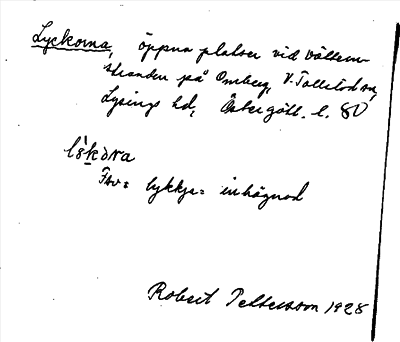 Lyckorna, öppna platser vid Vättern-
stranden på Omberg, V. Tollstad sn,
Lysings hd, Östergötl. l. 80
Fsv: lykkja = inhägnad
Robert Pettersson 1928